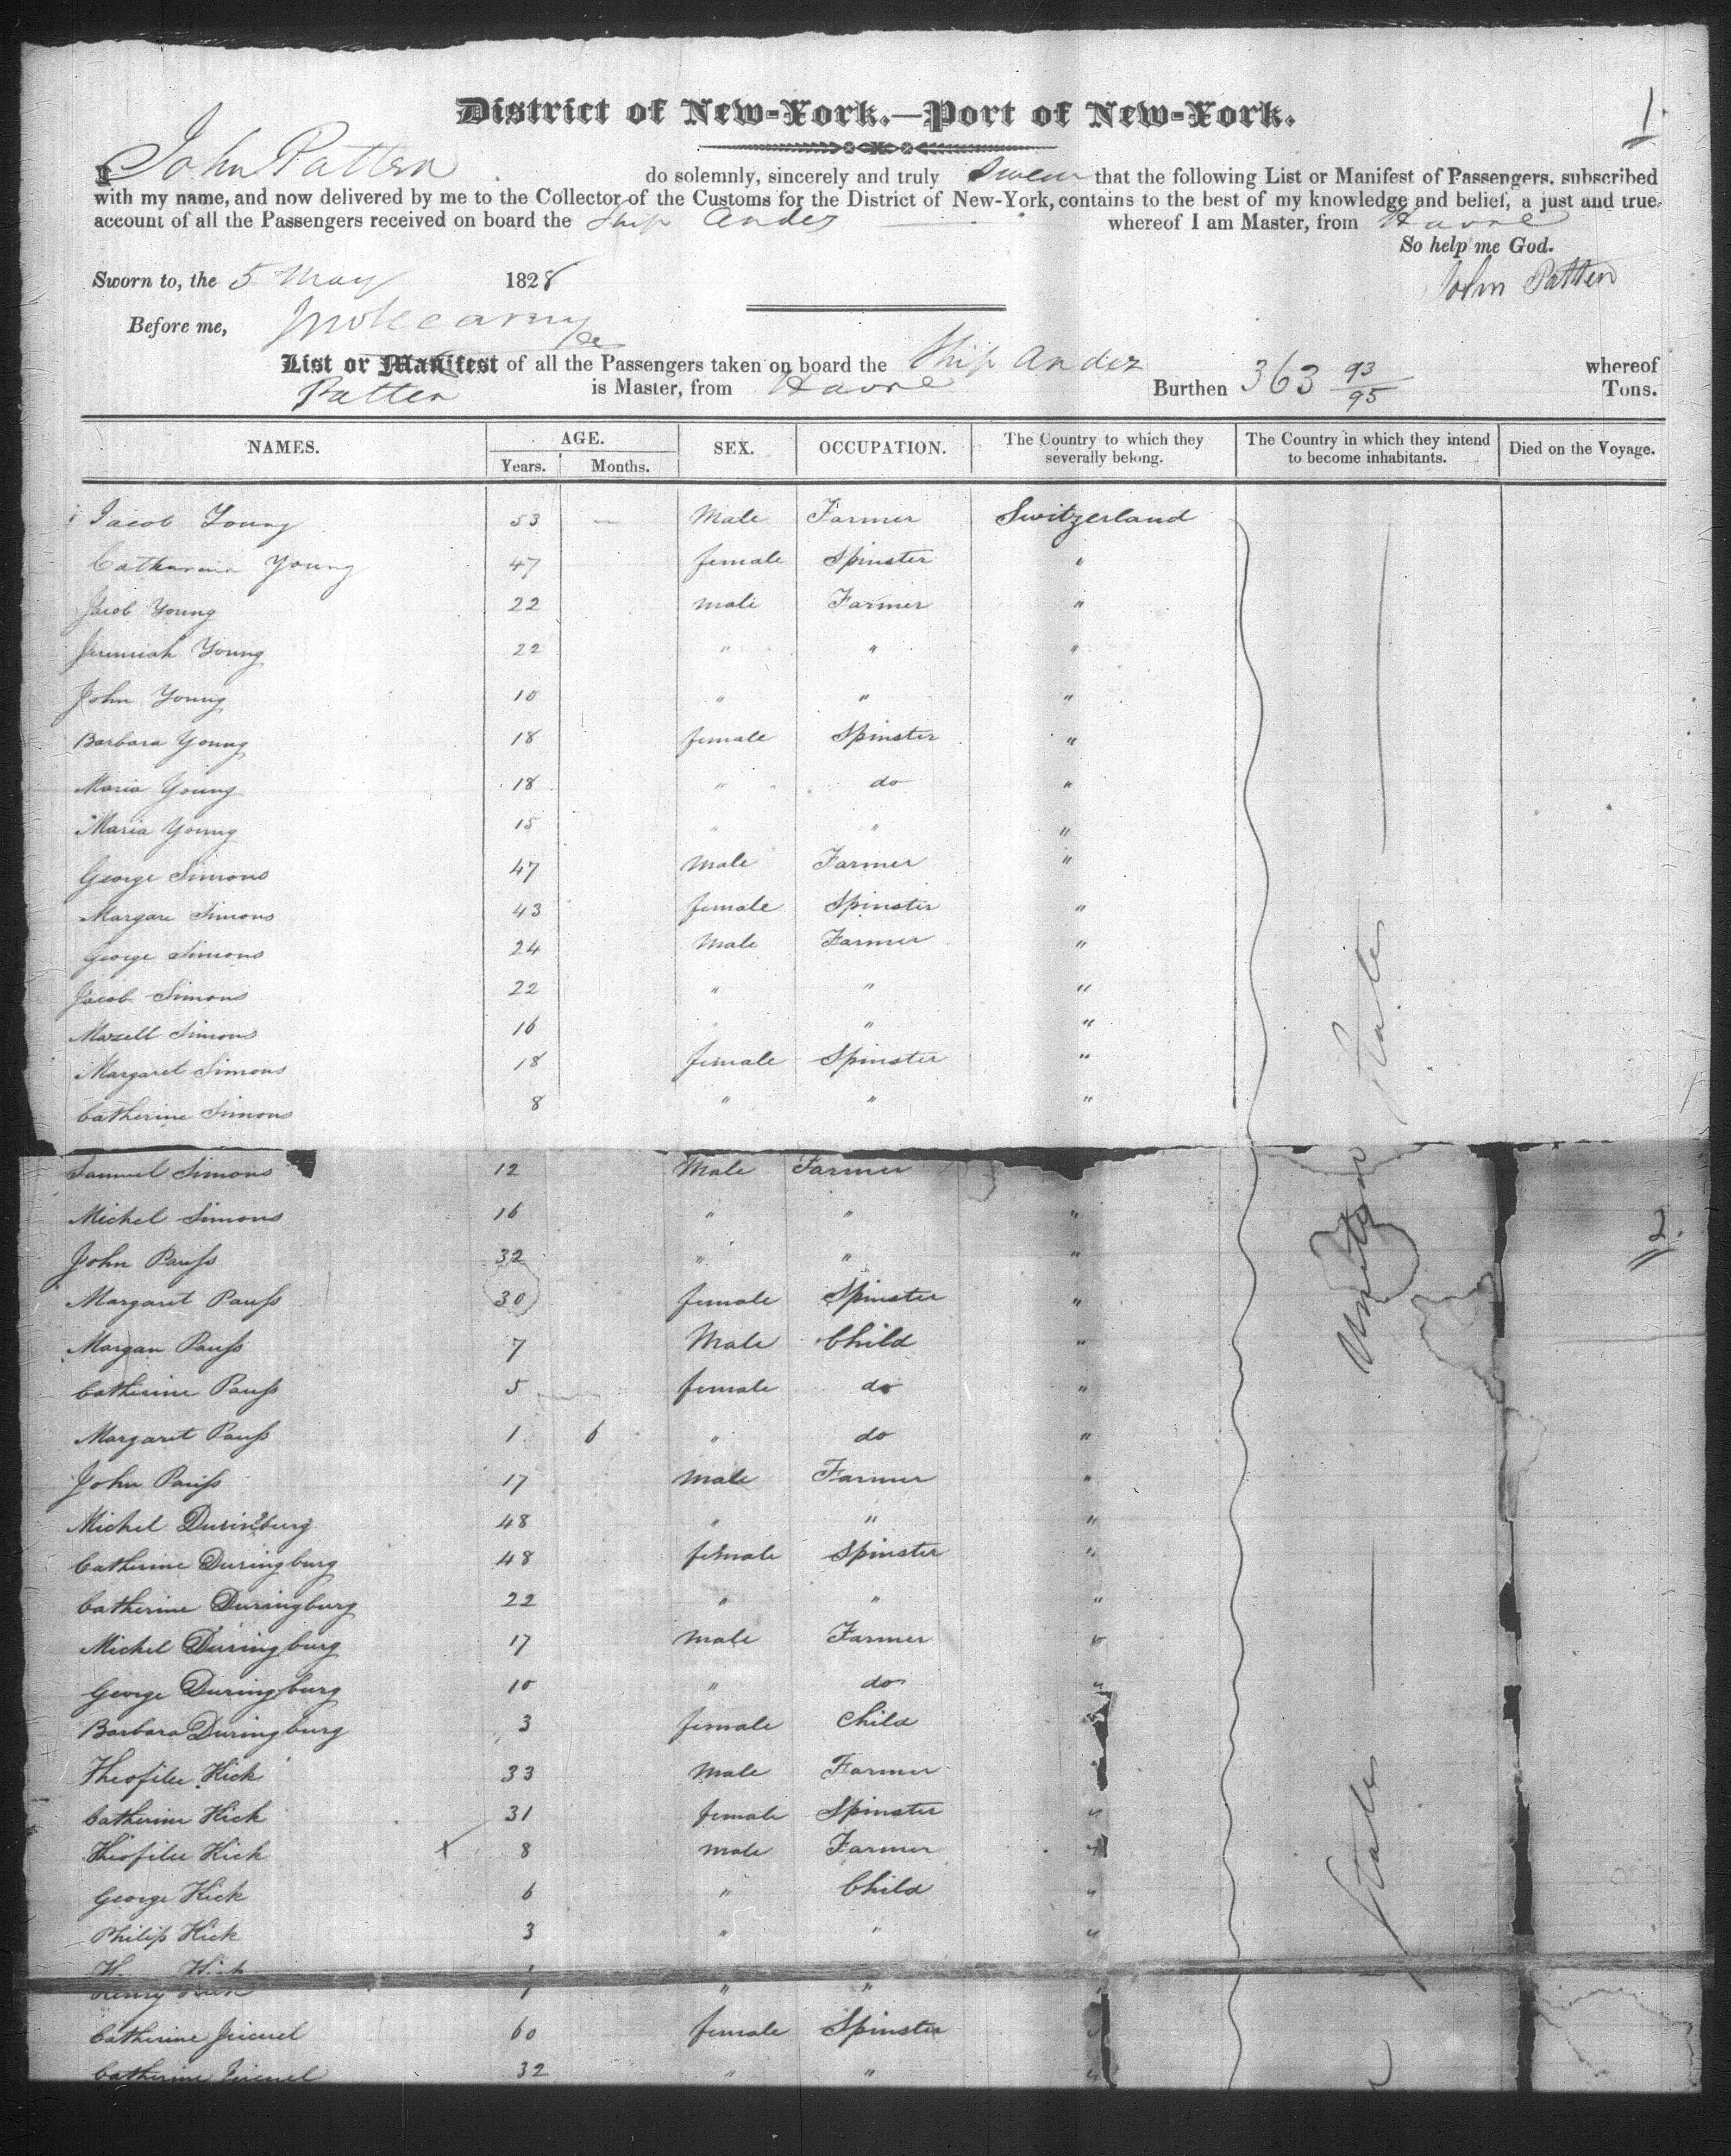 1
District of New-York.—Port of New-York.
I John Patten do solemnly, sincerely and truly Swear that the following List or Manifest of Passengers, subscribed
with my name, and now delivered by me to the Collector of the Customs for the District of New-York, contains to the best of my knowledge and belief, a just and true
account of all the Passengers received on board the Ship Andes whereof I am Master, from Havre
So help me God.
Sworn to, the 5 May 1828 John Patten
Before me,
List or Manifest of all the Passengers taken on board the Ship Andes whereof
Patten is Master, from Havre Burthen 363 93/95 Tons.
NAMES. AGE. Years. Months. SEX. OCCUPATION. The Country to which they severally belong. The Country in which they intend to become inhabitants. Died on the Voyage.
Jacob Young 53 — Male Farmer Switzerland
Catharina Young 47 female Spinster "
Jacob Young 22 male Farmer "
Jeremiah Young 22 " " "
John Young 10 " " "
Barbara Young 18 female Spinster "
Maria Young 18 " do "
Maria Young 15 " " "
George Simons 47 Male Farmer "
Margare Simons 43 female Spinster "
George Simons 24 Male Farmer "
Jacob Simons 22 " " "
Simons 16 " " "
Margaret Simons 18 female Spinster "
Catherine Simons 8 " " "
United States
Samuel Simons 12 Male Farmer
Michel Simons 16 " " "
2
John Pauss 32 " " "
Margaret Pauss 30 female Spinster "
Morgan Pauss 7 Male Child "
Catherine Pauss 5 female do "
Margaret Pauss 1 6 " do "
John Pauss 17 Male Farmer "
Michel Duringburg 48 " " "
Catherine Duringburg 48 female Spinster "
Catherine Duringburg 22 " " "
Michel Duringburg 17 Male Farmer "
George Duringburg 10 " do "
Barbara Duringburg 3 female Child "
Theofilee Hick 33 Male Farmer "
Catherine Hick 31 female Spinster "
Theofilee Hick X 8 male Farmer "
George Hick 6 " Child "
Philip Hick 3 " " "
States
Henry Hick 1 " " "
Catherine 60 female Spinster "
Catherine 32 " " "